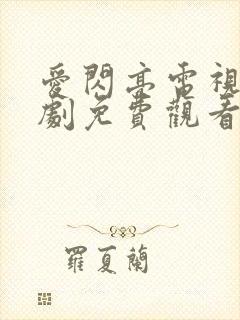 愛閃亮電視
劇免費觀看
羅夏蘭